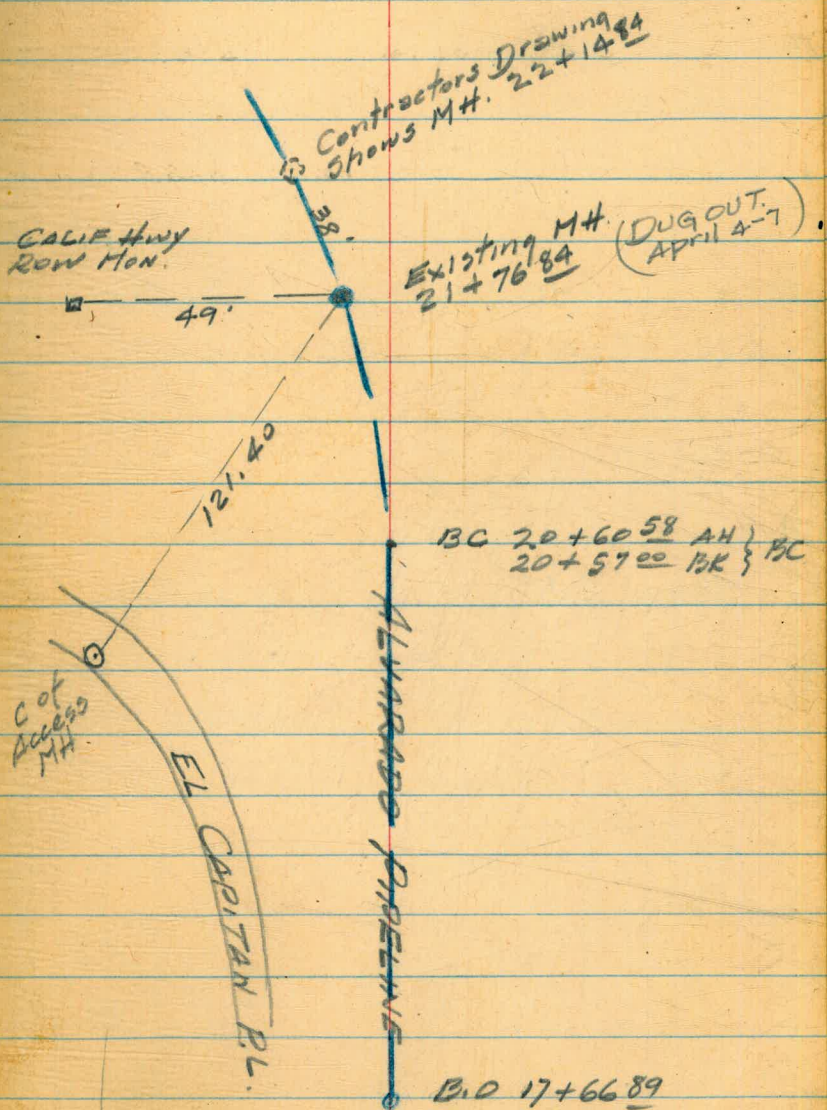 Contractors Drawing
Shows MH. 22+14 84
38'
CALIF HWY
ROW MON.
49'
Existing MH.
21+76 84
(DUG OUT.
April 4-7)
121.40
BC 20+60 58 AH } BC
20+57 00 BK
C of
Access
MH
EL CAPITAN P.L.
ALVARADO PIPELINE
B.O 17+66 89